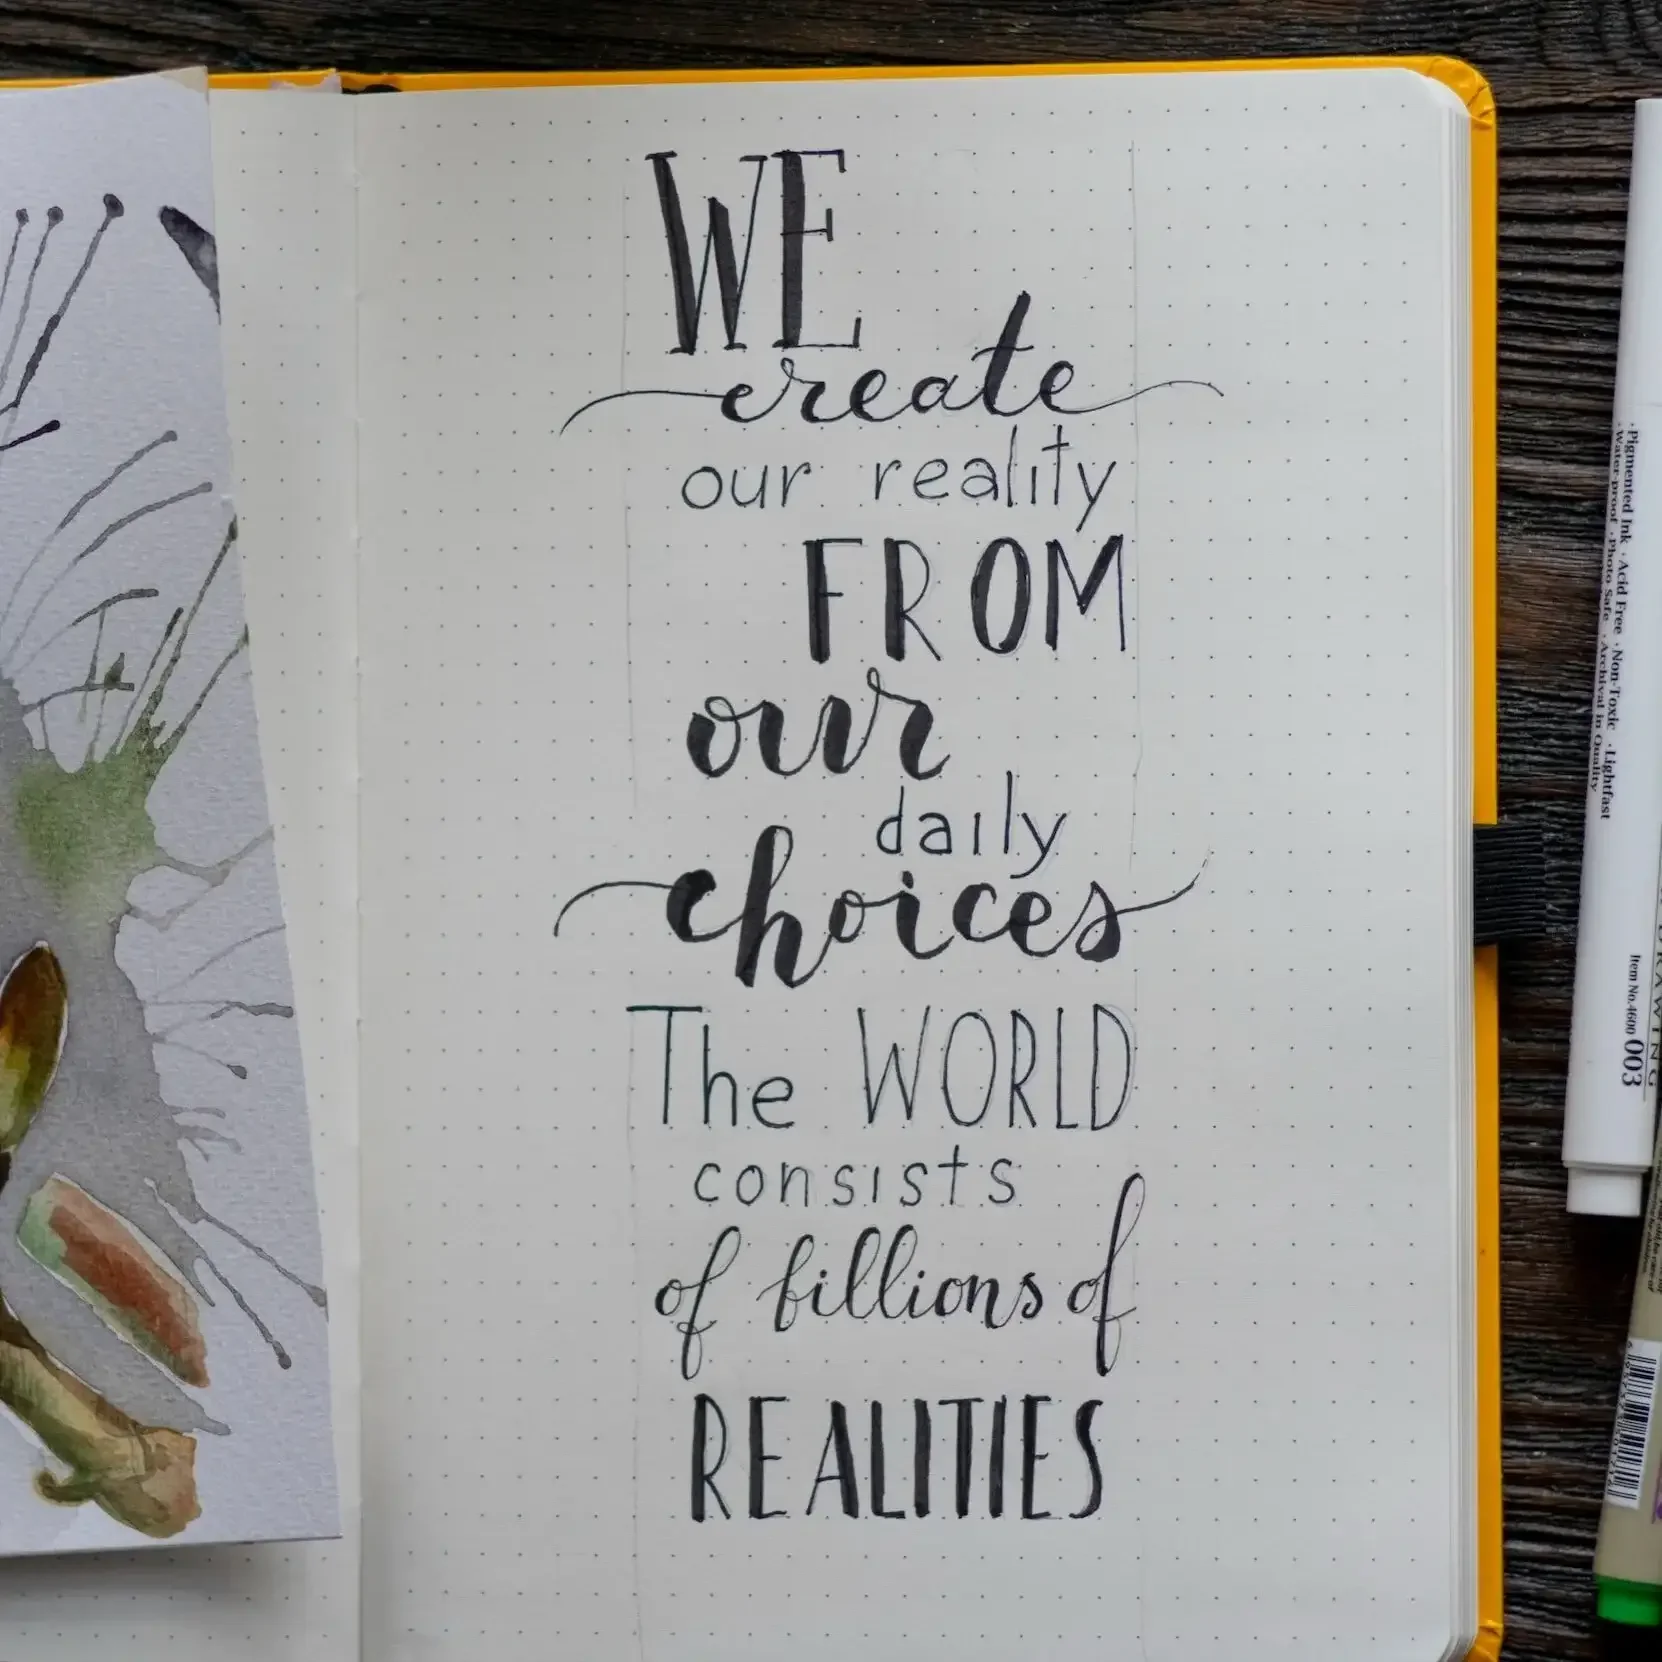 WE
create
our reality
FROM
our
daily
choices
The WORLD
consists
of billions of
REALITIES
·Pigmented Ink ·Acid Free ·Non-Toxic ·Lightfast
·Water-proof ·Photo Safe ·Archival in Quality
Item No.4600 003
DRAWING